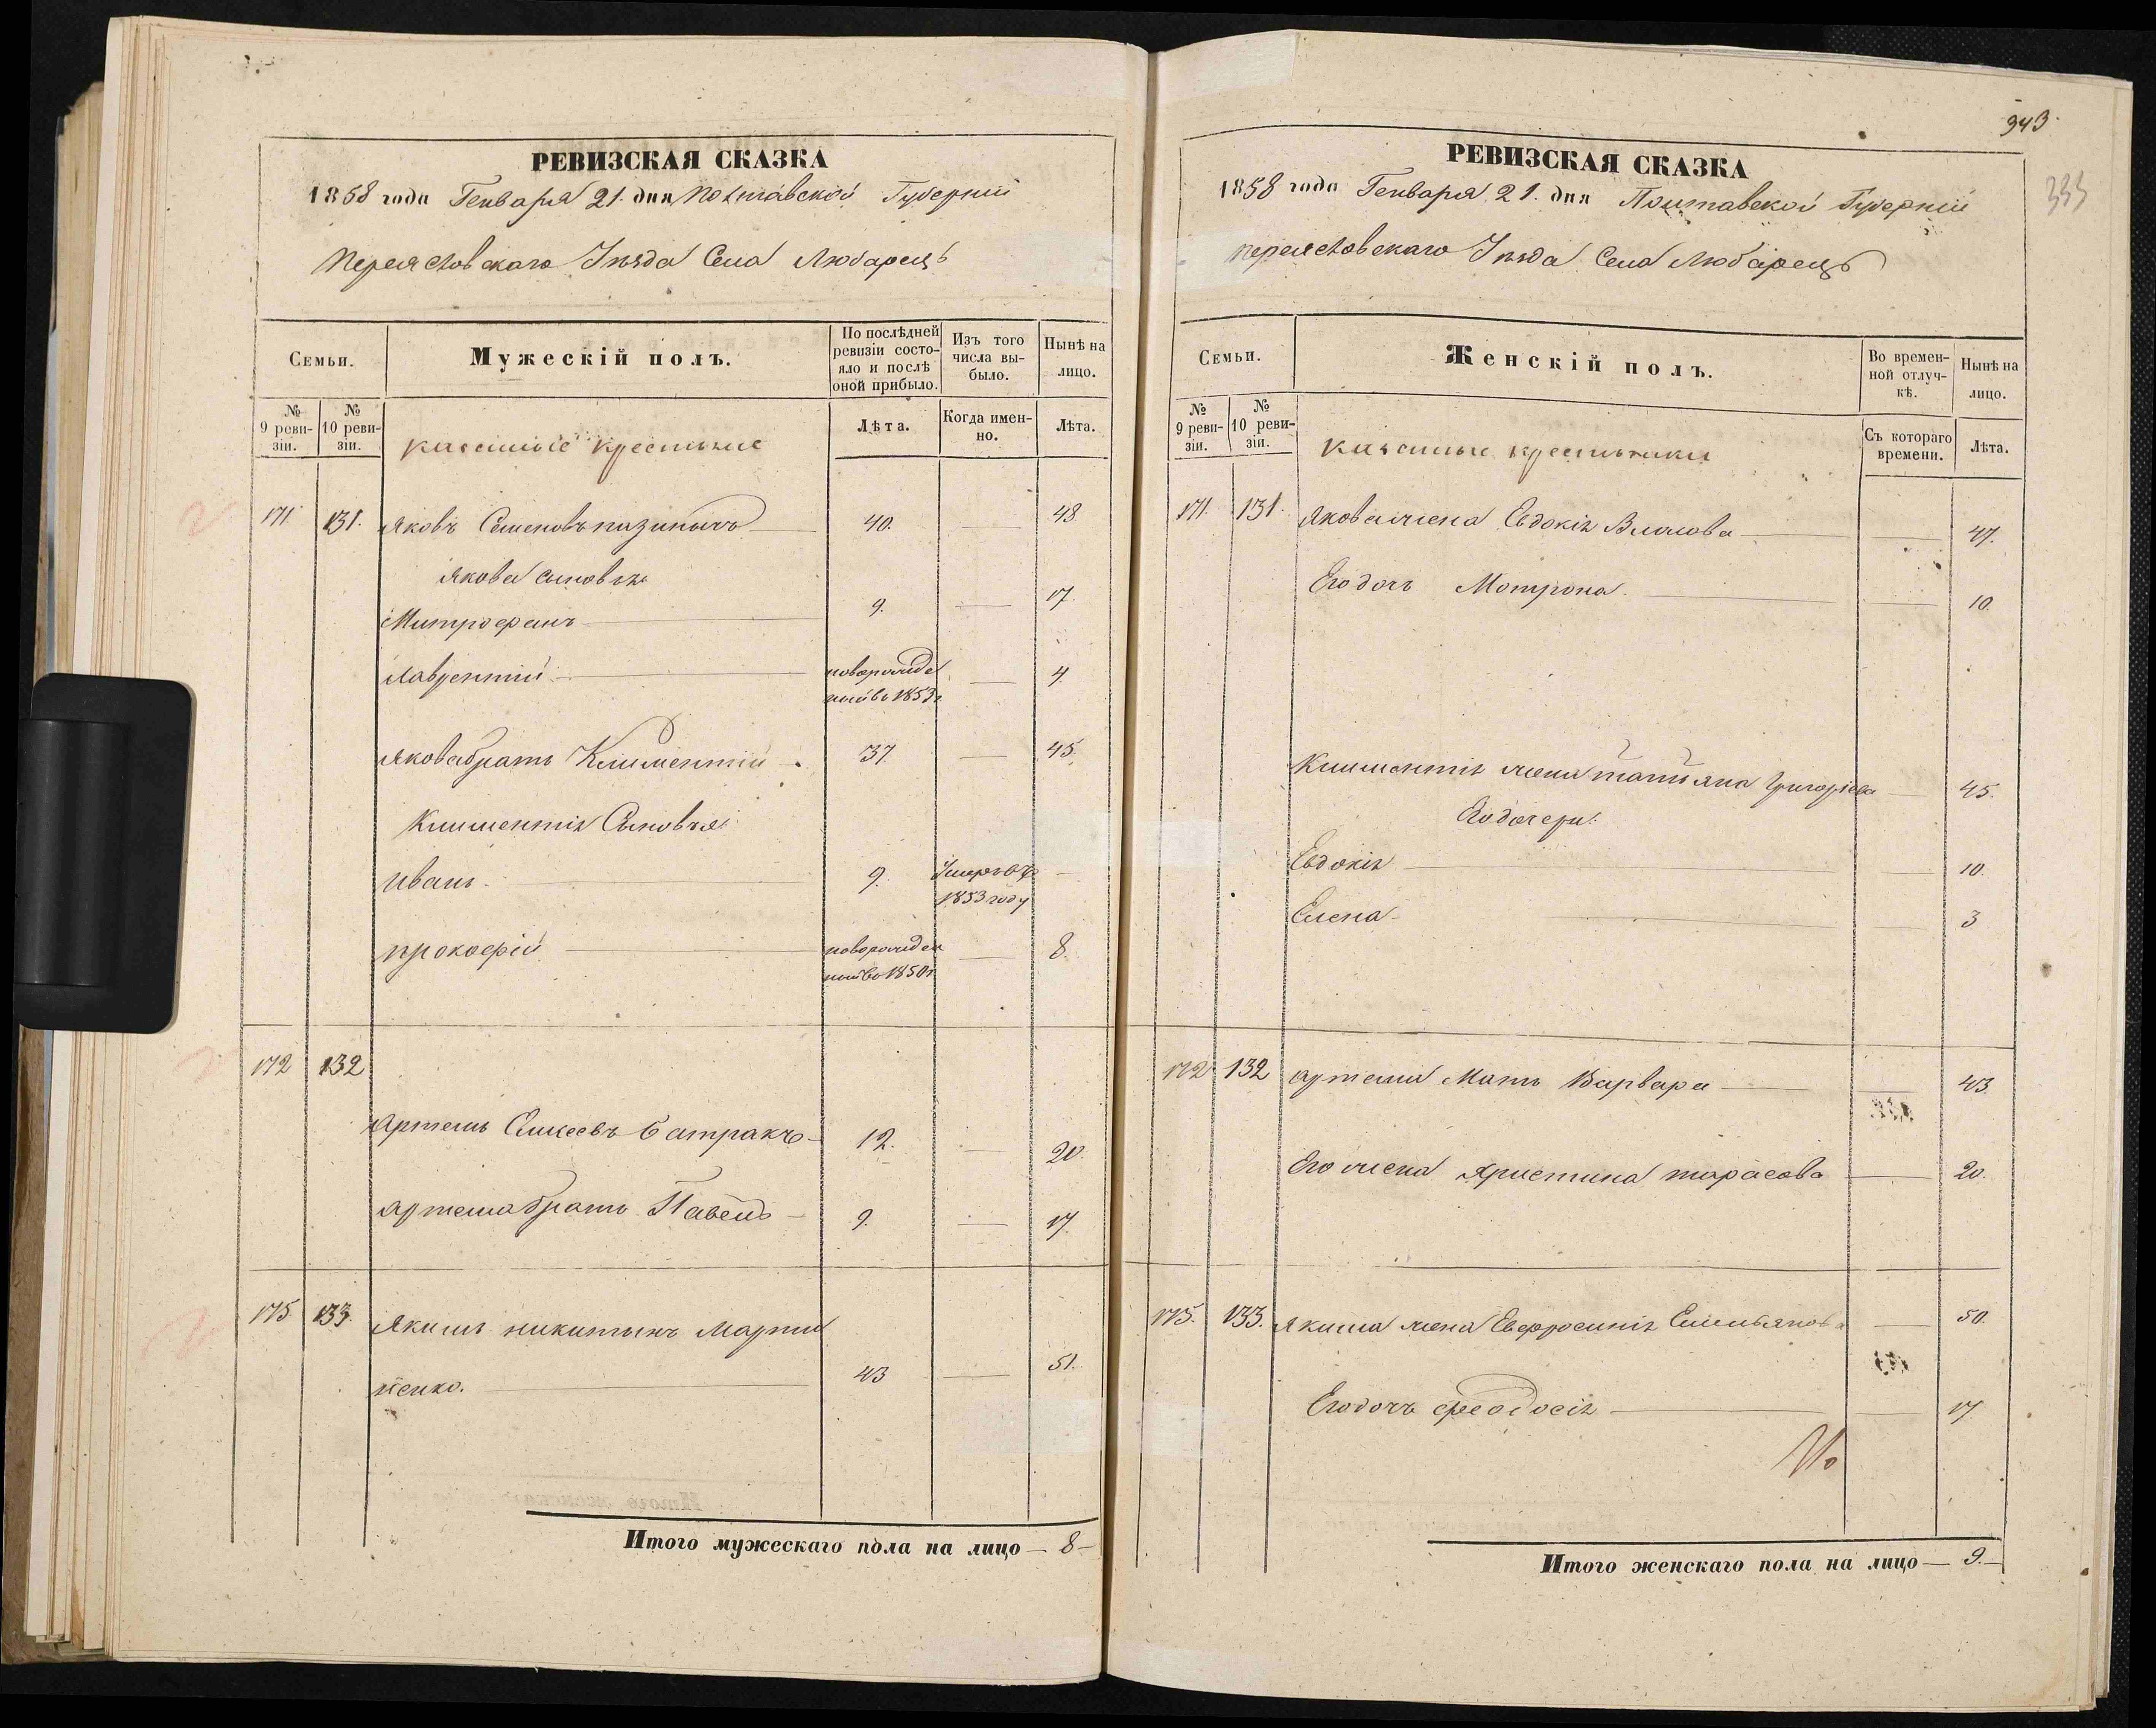 РЕВИЗСКАЯ СКАЗКА
1858 года Генваря 21. дня Полтавской Губерніи
Переяславскаго Уѣзда Села Любарецъ
Семьи.
Мужескій полъ.
По послѣдней ревизіи состояло и послѣ оной прибыло.
Изъ того числа выбыло.
Нынѣ на лицо.
№ 9 ревизіи.
№ 10 ревизіи.
казенные крестьяне
Лѣта.
Когда именно.
Лѣта.
171 131. Яковъ Семеновъ 40. 48
Якова сыновья
Митрофанъ 9. 17.
Лаврентій новорожде 4.
ный въ 1853г
Якова братъ Климентій 37. 45.
Климентія Сыновья:
Иванъ. 9. Умеръ въ
1853 году
Прокофій новорожден 8.
ный въ 1850г.
172 132
Артемъ Батракъ 12. 20.
Артема братъ Павелъ 9. 17.
175 133. Якимъ Никитинъ Марти
ненко. 43 51.
Итого мужескаго пола на лицо — 8 —
943.
333
РЕВИЗСКАЯ СКАЗКА
1858 года Генваря 21. дня Полтавской Губерніи
Переяславскаго Уѣзда Села Любарецъ
Семьи.
Женскій полъ.
Во временной отлучкѣ.
Нынѣ на лицо.
№ 9 ревизіи.
№ 10 ревизіи.
казенные крестьянки
Съ котораго времени.
Лѣта.
171. 131. Якова жена Евдокія Власова 47.
Его дочь Мотрона. 10.
Климентія жена Татьяна Григорьева 45.
Его дочери:
Евдокія 10.
Елена 3
172 132 Артема Мать Варвара 43
Его жена Христина Тарасова 20.
175. 133. Якима жена Евфросинія Емельянова 50.
Его дочь Феодосія 17
Итого женскаго пола на лицо — 9. —